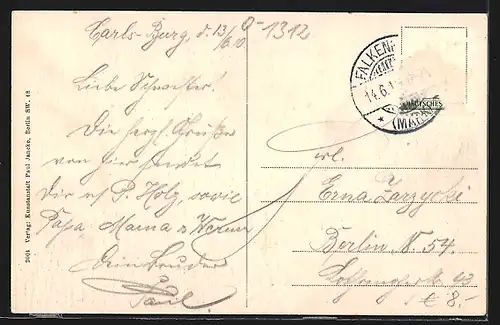 Carls-Burg, d. 13/6.10
Q-1312
Liebe Schwester.
Die herzl. Grüße
von hier sendet
Dir P. Holz, sowie
Papa, Mama u. Werner
Dein Bruder
Paul
2001 Verlag: Kunstanstalt Paul Jancke, Berlin SW. 48
FALKENB
14.6.1
(MARK)
Frl.
Erna Zarzycki
Berlin N. 54.
Lothringerstr. 43
€ 8.-